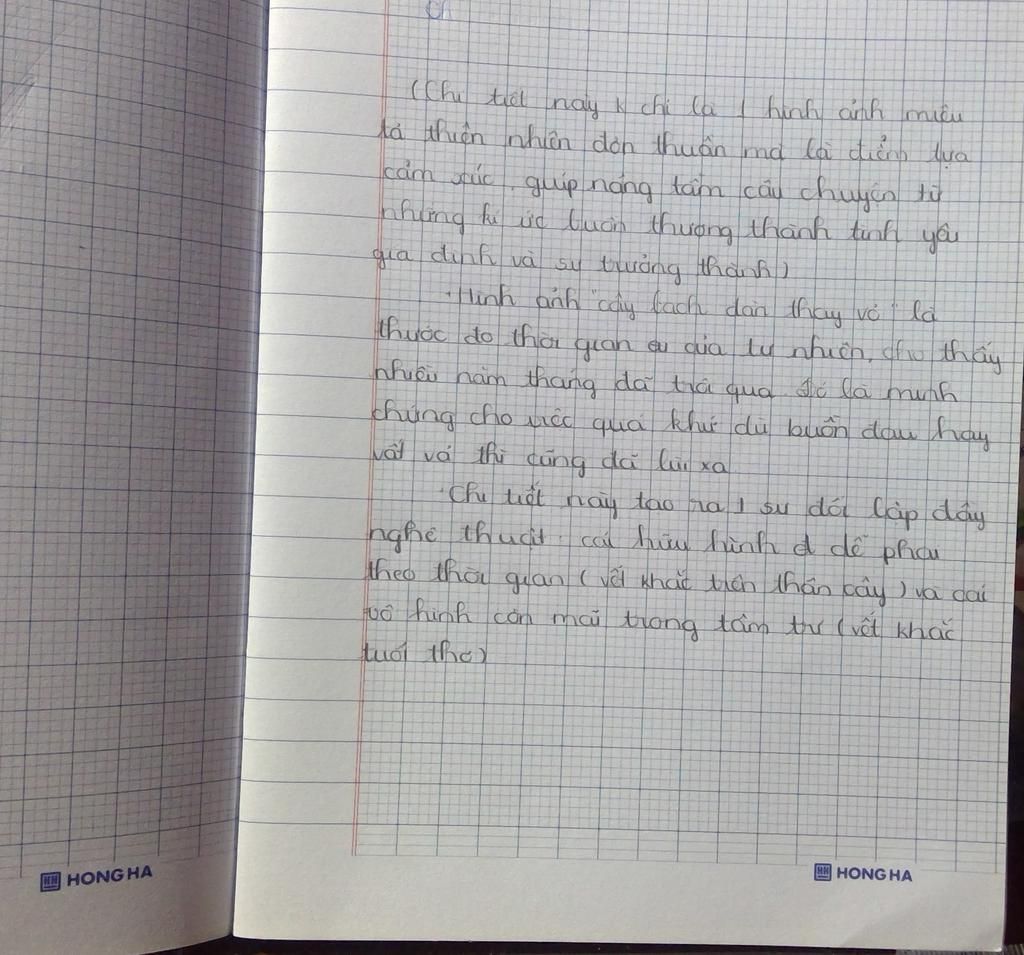 (Chi tiết này k chỉ là 1 hình ảnh miêu
tả thiên nhiên đơn thuần mà là điểm tựa
cảm xúc, giúp nâng tầm câu chuyện từ
những kí ức buồn thương thành tình yêu
gia đình và sự trưởng thành)
· Hình ảnh "cây bạch đàn thay vỏ" là
thước đo thời gian của tự nhiên, cho thấy
nhiều năm tháng đã trôi qua. Đó là minh
chứng cho việc quá khứ dù buồn đau hay
vất vả thì cũng đã lùi xa
· Chi tiết này tạo ra 1 sự đối lập đầy
nghệ thuật: cái hữu hình dễ phai
theo thời gian (vết khắc trên thân cây) và cái
vô hình còn mãi trong tâm trí (vết khắc
tuổi thơ)
HONG HA
HONG HA